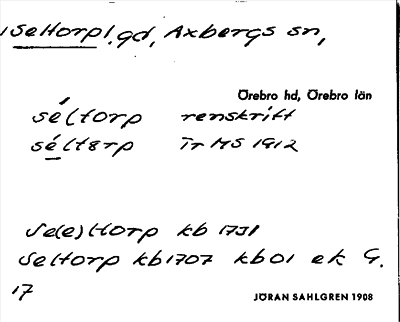 Seltorp, gd, Axbergs sn,
Örebro hd, Örebro län
séltorp renskrift
séltɞrp Tr MS 1912
Se(e)ltorp kb 1731
Seltorp kb 1707 kb OI ek G.
17
JÖRAN SAHLGREN 1908